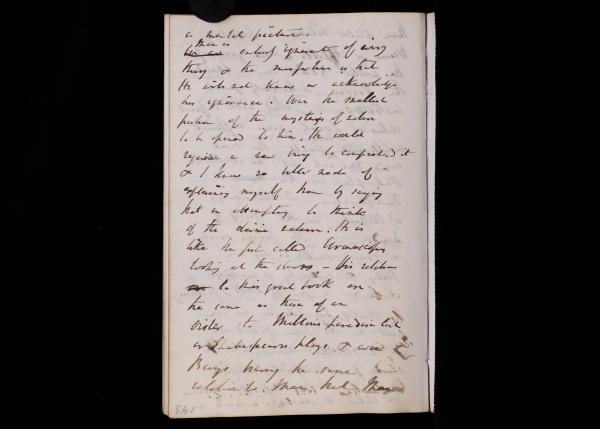 a mental picture.
Man is entirely ignorant of every
thing & the misfortune is that
He will not know or acknowledge
his ignorance. Were the smallest
portion of the mysteries of nature
to be opened to him, He would
require a new being to comprehend it
& I know no better mode of
explaining myself than by saying
that in attempting to think
of the divine nature, He is
like the fish called Uranoscopus
looking at the stars. – His relations
to this great book are
the same as those of an
Oister to Miltons paradise lost
or Shakespears plays &
Beings having the same
relation to Man that Man
143